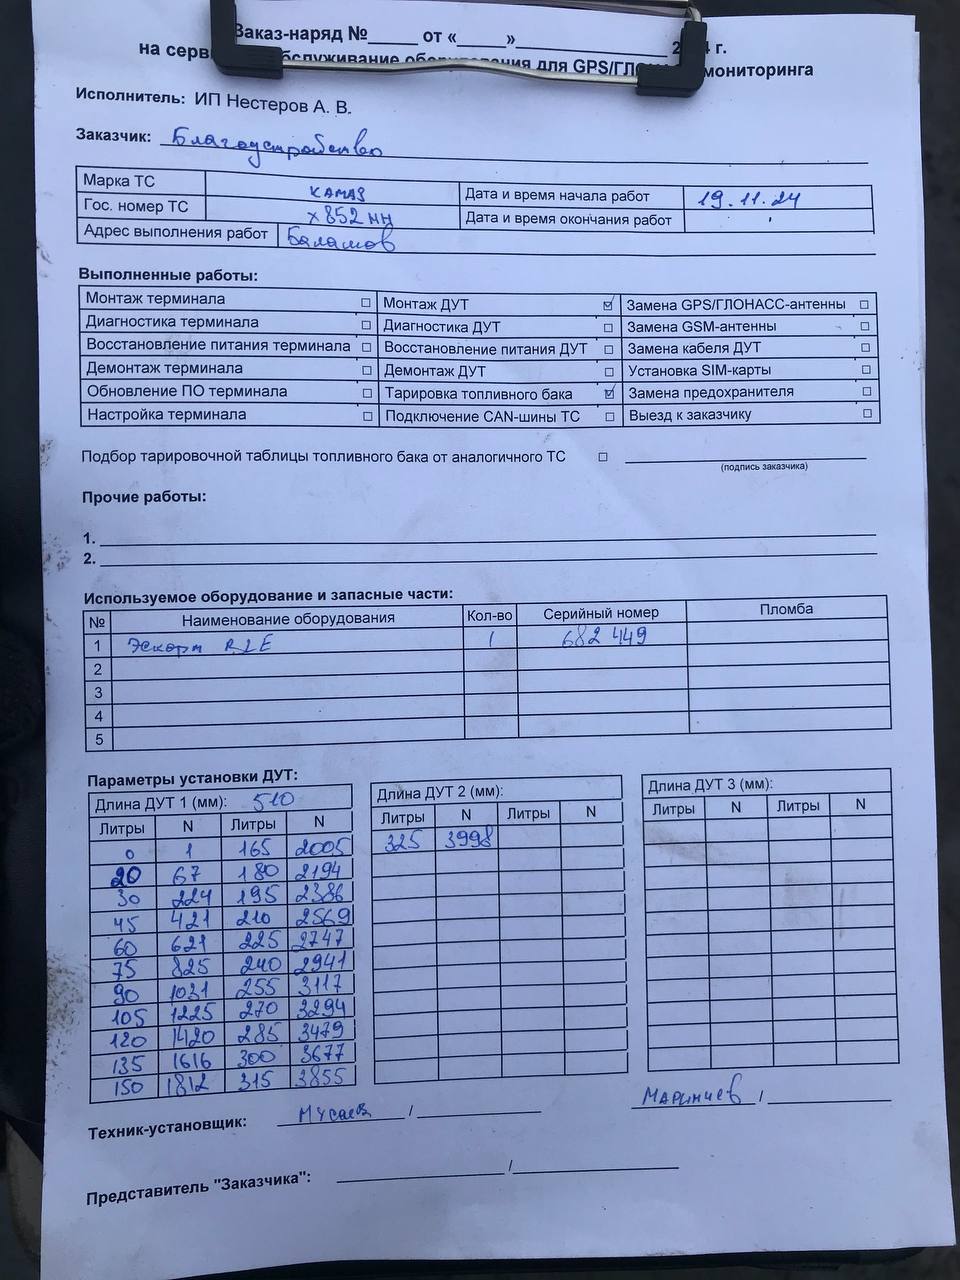 Заказ-наряд №_____ от «_____»_______________ 2 4 г.
на серв бслуживание оборудования для GPS/ГЛО мониторинга
Исполнитель: ИП Нестеров А. В.
Заказчик: Благоустройство
Марка ТС КАМАЗ Дата и время начала работ 19.11.24
Гос. номер ТС х852 мн Дата и время окончания работ
Адрес выполнения работ Баламов
Выполненные работы:
Монтаж терминала ☐ Монтаж ДУТ ☑ Замена GPS/ГЛОНАСС-антенны ☐
Диагностика терминала ☐ Диагностика ДУТ ☐ Замена GSM-антенны ☐
Восстановление питания терминала ☐ Восстановление питания ДУТ ☐ Замена кабеля ДУТ ☐
Демонтаж терминала ☐ Демонтаж ДУТ ☐ Установка SIM-карты ☐
Обновление ПО терминала ☐ Тарировка топливного бака ☑ Замена предохранителя ☐
Настройка терминала ☐ Подключение CAN-шины ТС ☐ Выезд к заказчику ☐
Подбор тарировочной таблицы топливного бака от аналогичного ТС ☐
(подпись заказчика)
Прочие работы:
1.
2.
Используемое оборудование и запасные части:
№ Наименование оборудования Кол-во Серийный номер Пломба
1 Эскорт 1 682 449
2
3
4
5
Параметры установки ДУТ:
Длина ДУТ 1 (мм): 510 Длина ДУТ 2 (мм): Длина ДУТ 3 (мм):
Литры N Литры N Литры N Литры N Литры N Литры N
0 1 165 2005 325 3998
20 67 180 2194
30 224 195 2386
45 421 210 2569
60 621 225 2747
75 825 240 2941
90 1031 255 3117
105 1225 270 3294
120 1420 285 3479
135 1616 300 3677
150 1812 315 3855
Техник-установщик: Мусаев / Маринчев /
Представитель "Заказчика": /